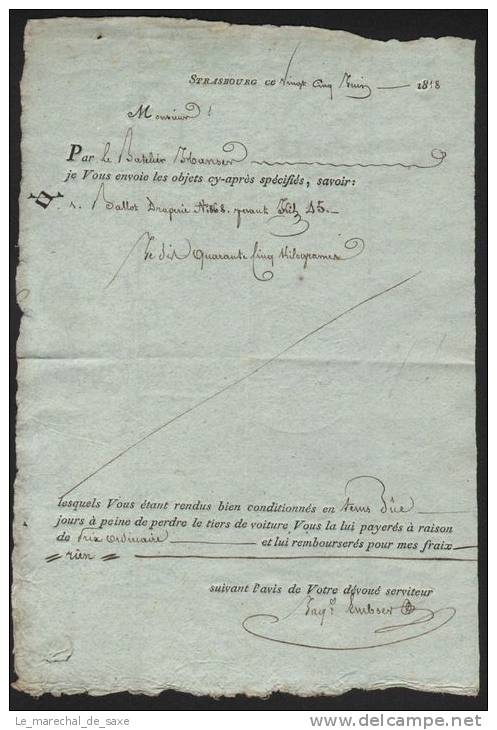 STRASBOURG ce Vingt Cinq Juin 1818
Monsieur !
Par le Batelier Hanser
je Vous envoie les objets cy-après spécifiés, savoir:
1. Ballot Draperie N. 168. pesant Kil 45.
Je dis Quarante Cinq Kilogrames
lesquels Vous étant rendus bien conditionnés en tems Dûe
jours à peine de perdre le tiers de voiture, Vous la lui payerés à raison
de Prix ordinaire et lui rembourserés pour mes fraix
rien
suivant l'avis de Votre dévoué serviteur
Embser
Le_marechal_de_saxe
delcampe.net